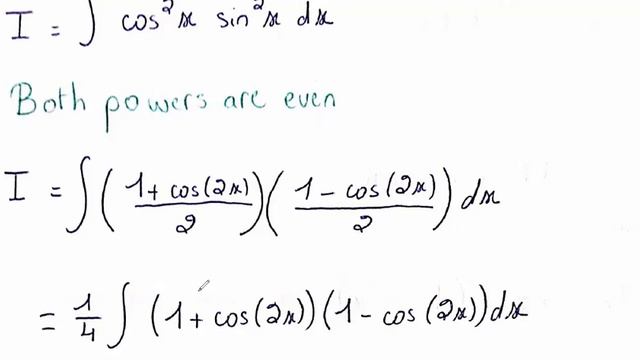 I = ∫ cos²x sin²x dx
Both powers are even
I = ∫ ( (1 + cos(2x))/2 ) ( (1 - cos(2x))/2 ) dx
= 1/4 ∫ (1 + cos(2x)) (1 - cos(2x)) dx